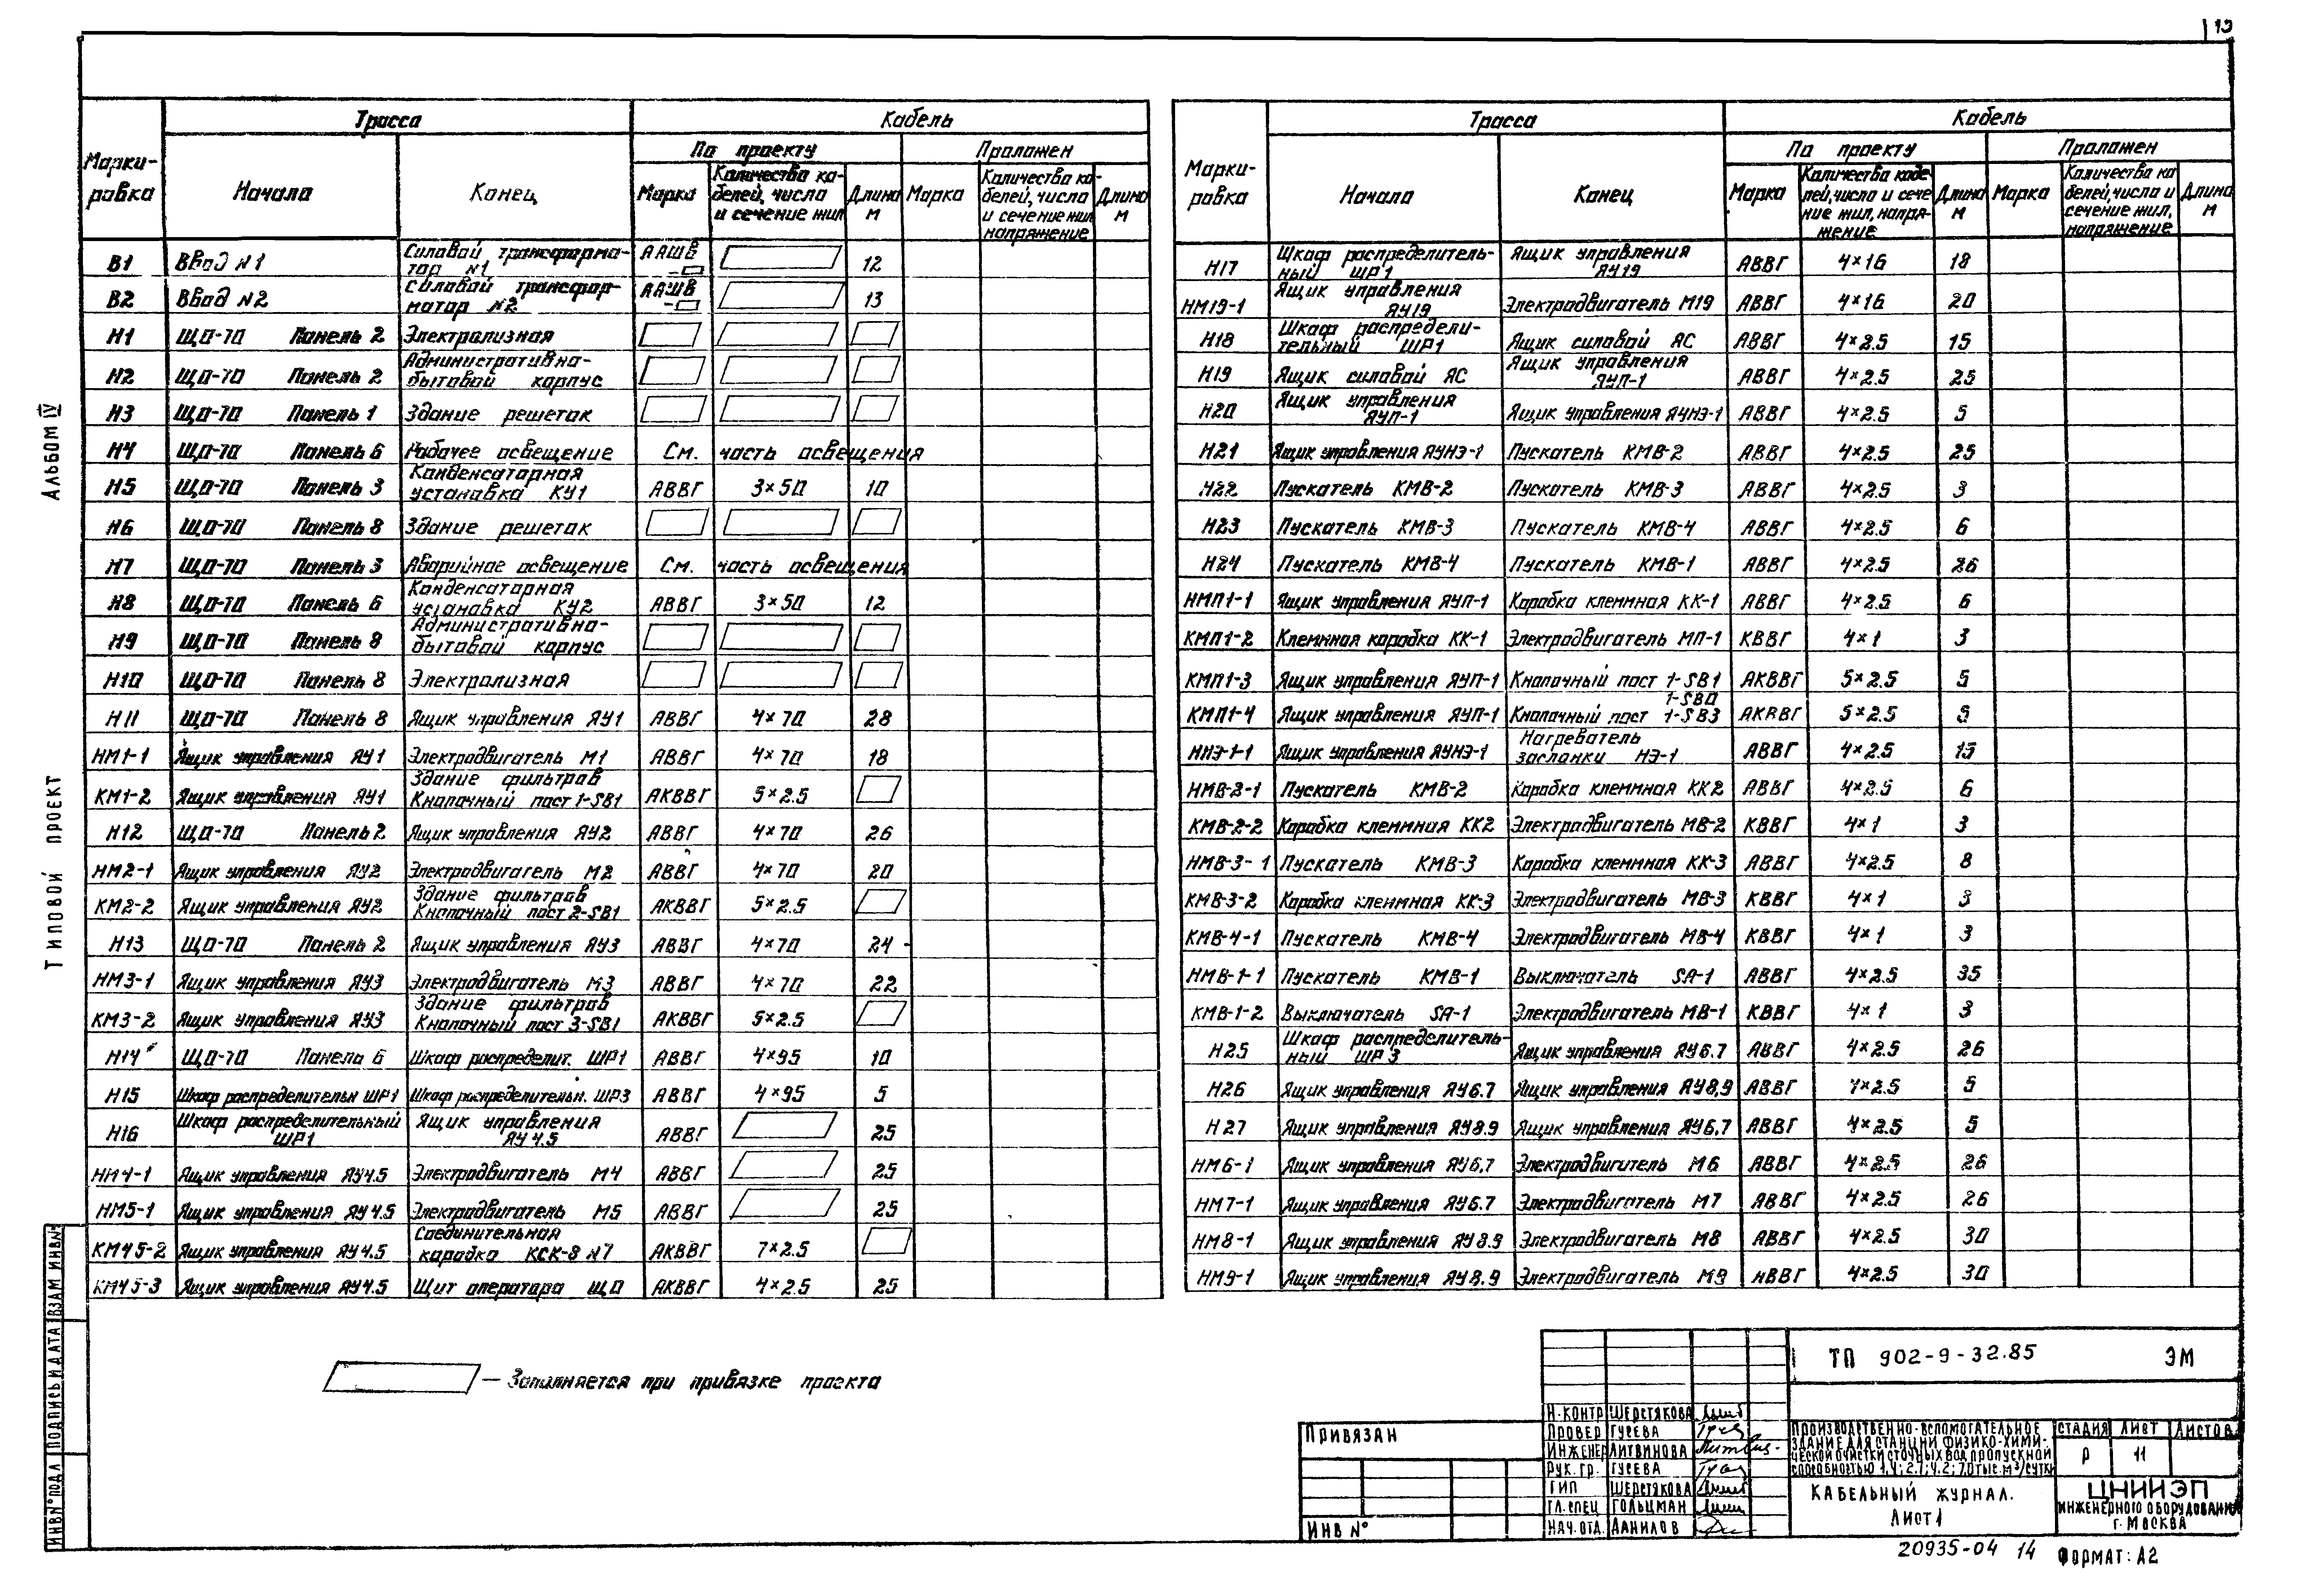 13
Альбом IV
Типовой проект
Марки-ровка | Трасса | Кабель
Начало | Конец | По проекту | Проложен
Марка | Количество кабелей, число и сечение жил | Длина м | Марка | Количество кабелей, число и сечение жил, напряжение | Длина м
В1 Ввод №1 Силовой трансформатор №1 ААШВ - 12
В2 Ввод №2 Силовой трансформатор №2 ААШВ - 13
Н1 ЩО-70 Панель 2 Электролизная
Н2 ЩО-70 Панель 2 Административно-бытовой корпус
Н3 ЩО-70 Панель 1 Здание решеток
Н4 ЩО-70 Панель 6 Рабочее освещение См. часть освещения
Н5 ЩО-70 Панель 3 Конденсаторная установка КУ1 АВВГ 3×50 10
Н6 ЩО-70 Панель 8 Здание решеток
Н7 ЩО-70 Панель 3 Аварийное освещение См. часть освещения
Н8 ЩО-70 Панель 6 Конденсаторная установка КУ2 АВВГ 3×50 12
Н9 ЩО-70 Панель 8 Административно-бытовой корпус
Н10 ЩО-70 Панель 8 Электролизная
Н11 ЩО-70 Панель 8 Ящик управления ЯУ1 АВВГ 4×70 28
НМ1-1 Ящик управления ЯУ1 Электродвигатель М1 АВВГ 4×70 18
КМ1-2 Ящик управления ЯУ1 Здание фильтров Кнопочный пост 1-SB1 АКВВГ 5×2.5
Н12 ЩО-70 Панель 2 Ящик управления ЯУ2 АВВГ 4×70 26
НМ2-1 Ящик управления ЯУ2 Электродвигатель М2 АВВГ 4×70 20
КМ2-2 Ящик управления ЯУ2 Здание фильтров Кнопочный пост 2-SB1 АКВВГ 5×2.5
Н13 ЩО-70 Панель 2 Ящик управления ЯУ3 АВВГ 4×70 24
НМ3-1 Ящик управления ЯУ3 Электродвигатель М3 АВВГ 4×70 22
КМ3-2 Ящик управления ЯУ3 Здание фильтров Кнопочный пост 3-SB1 АКВВГ 5×2.5
Н14 ЩО-70 Панель 6 Шкаф распределит. ШР1 АВВГ 4×95 10
Н15 Шкаф распределительн ШР1 Шкаф распределительн. ШР3 АВВГ 4×95 5
Н16 Шкаф распределительный ШР1 Ящик управления ЯУ4.5 АВВГ 25
НМ4-1 Ящик управления ЯУ4.5 Электродвигатель М4 АВВГ 25
НМ5-1 Ящик управления ЯУ4.5 Электродвигатель М5 АВВГ 25
КМ45-2 Ящик управления ЯУ4.5 Соединительная коробка КСК-8 №7 АКВВГ 7×2.5
КМ45-3 Ящик управления ЯУ4.5 Щит оператора ЩО АКВВГ 4×2.5 25
Марки-ровка | Трасса | Кабель
Начало | Конец | По проекту | Проложен
Марка | Количество кабелей, число и сечение жил, напряжение | Длина м | Марка | Количество кабелей, число и сечение жил, напряжение | Длина м
Н17 Шкаф распределительный ШР1 Ящик управления ЯУ19 АВВГ 4×16 18
НМ19-1 Ящик управления ЯУ19 Электродвигатель М19 АВВГ 4×16 20
Н18 Шкаф распределительный ШР1 Ящик силовой ЯС АВВГ 4×2.5 15
Н19 Ящик силовой ЯС Ящик управления ЯУП-1 АВВГ 4×2.5 25
Н20 Ящик управления ЯУП-1 Ящик управления ЯУНЭ-1 АВВГ 4×2.5 5
Н21 Ящик управления ЯУНЭ-1 Пускатель КМВ-2 АВВГ 4×2.5 25
Н22 Пускатель КМВ-2 Пускатель КМВ-3 АВВГ 4×2.5 3
Н23 Пускатель КМВ-3 Пускатель КМВ-4 АВВГ 4×2.5 6
Н24 Пускатель КМВ-4 Пускатель КМВ-1 АВВГ 4×2.5 26
НМП1-1 Ящик управления ЯУП-1 Коробка клеммная КК-1 АВВГ 4×2.5 6
КМП1-2 Клеммная коробка КК-1 Электродвигатель МП-1 КВВГ 4×1 3
КМП1-3 Ящик управления ЯУП-1 Кнопочный пост 1-SB1 АКВВГ 5×2.5 5
КМП1-4 Ящик управления ЯУП-1 Кнопочный пост 1-SB0 1-SB3 АКВВГ 5×2.5 5
ННЭ-1-1 Ящик управления ЯУНЭ-1 Нагреватель заслонки НЭ-1 АВВГ 4×2.5 15
НМВ-2-1 Пускатель КМВ-2 Коробка клеммная КК2 АВВГ 4×2.5 6
КМВ-2-2 Коробка клеммная КК2 Электродвигатель МВ-2 КВВГ 4×1 3
НМВ-3-1 Пускатель КМВ-3 Коробка клеммная КК-3 АВВГ 4×2.5 8
КМВ-3-2 Коробка клеммная КК-3 Электродвигатель МВ-3 КВВГ 4×1 3
КМВ-4-1 Пускатель КМВ-4 Электродвигатель МВ-4 КВВГ 4×1 3
НМВ-1-1 Пускатель КМВ-1 Выключатель SA-1 АВВГ 4×2.5 35
КМВ-1-2 Выключатель SA-1 Электродвигатель МВ-1 КВВГ 4×1 3
Н25 Шкаф распределительный ШР3 Ящик управления ЯУ6.7 АВВГ 4×2.5 26
Н26 Ящик управления ЯУ6.7 Ящик управления ЯУ8,9 АВВГ 4×2.5 5
Н27 Ящик управления ЯУ8.9 Ящик управления ЯУ6,7 АВВГ 4×2.5 5
НМ6-1 Ящик управления ЯУ6,7 Электродвигатель М6 АВВГ 4×2.5 26
НМ7-1 Ящик управления ЯУ6.7 Электродвигатель М7 АВВГ 4×2.5 26
НМ8-1 Ящик управления ЯУ8.9 Электродвигатель М8 АВВГ 4×2.5 30
НМ9-1 Ящик управления ЯУ8.9 Электродвигатель М9 АВВГ 4×2.5 30
— Заполняется при привязке проекта
Привязан
Инв №
Н.контр Шерстякова
Провер Гусева
Инженер Литвинова
Рук. гр. Гусева
ГИП Шерстякова
Гл. спец Гольцман
Нач. отд. Данилов
ТП 902-9-32.85 ЭМ
Производственно-вспомогательное
здание для станции физико-хими-
ческой очистки сточных вод пропускной
способностью 1,4; 2.7; 4.2; 7,0 тыс. м³/сутки
Стадия Лист Листов
Р 11
Кабельный журнал.
Лист 1
ЦНИИЭП
инженерного оборудования
г. Москва
20935-04 14 Формат: А2
Инв № подл Подпись и дата Взам инв №